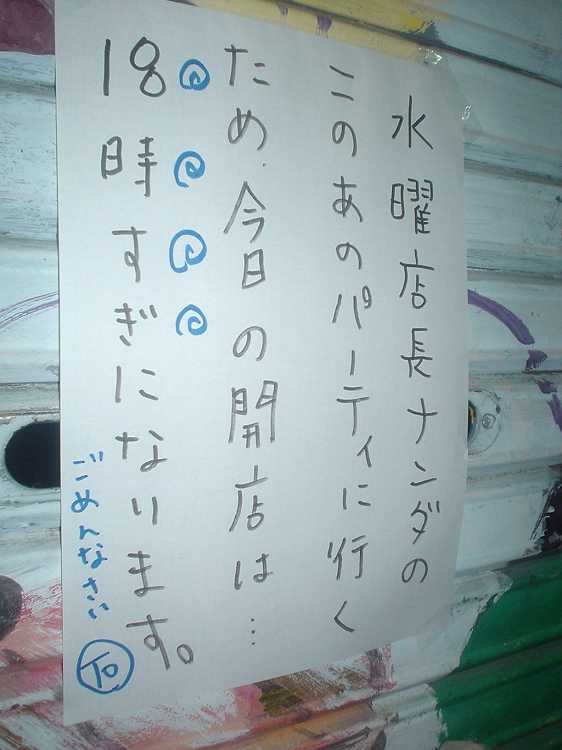 水曜店長ナンダの
このあのパーティに行く
ため、今日の開店は…
18時すぎになります。
ごめんなさい
To